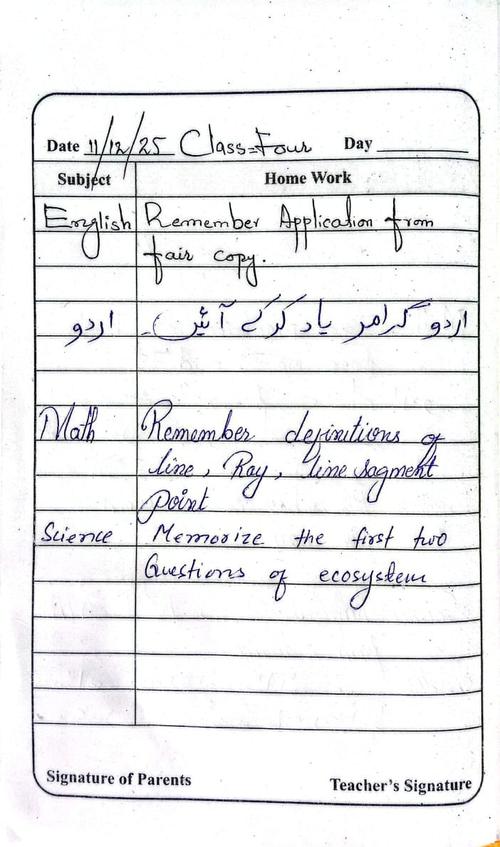 Date 11/12/25 Class=Four Day
Subject Home Work
English Remember Application from
fair copy.
اردو اردو گرامر یاد کرکے آئیں۔
Math Remember definitions of
line, Ray, line sagment
Point
Science Memorize the first two
Questions of ecosystem
Signature of Parents Teacher's Signature